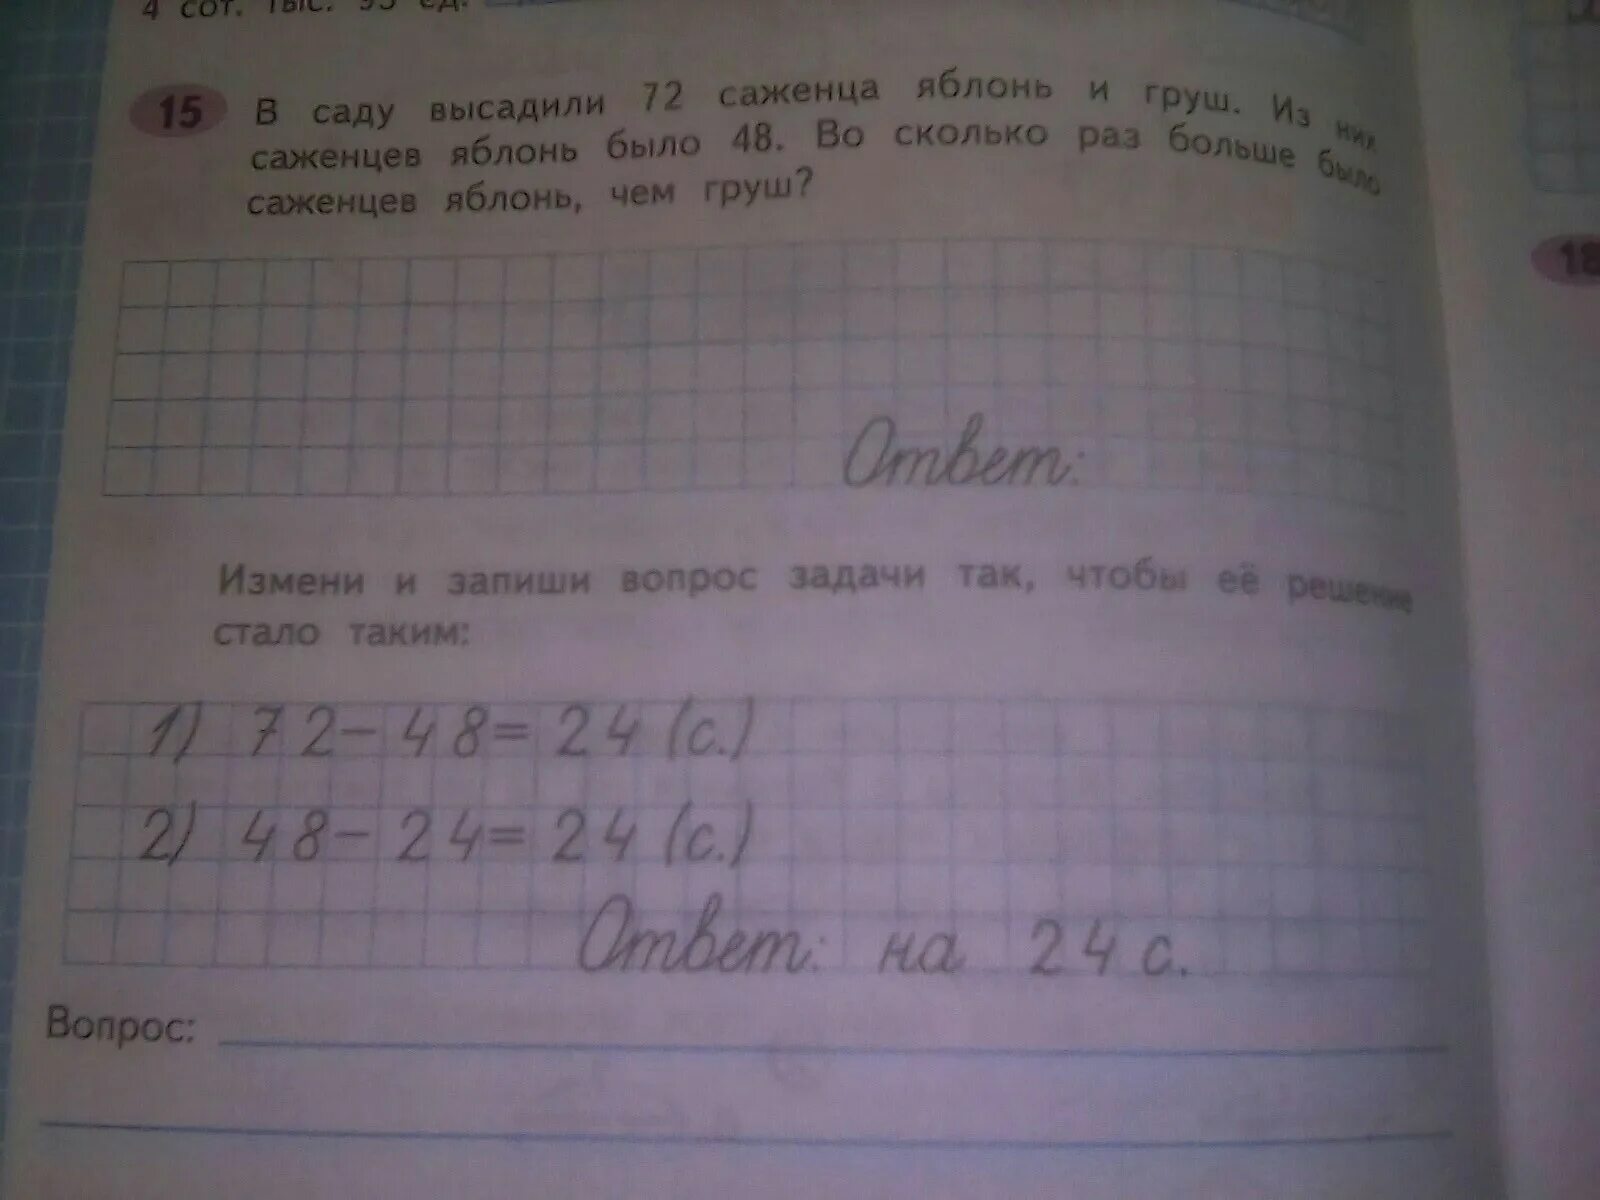 4 сот. тыс. 95 ед.
15 В саду высадили 72 саженца яблонь и груш. Из них
саженцев яблонь было 48. Во сколько раз больше было
саженцев яблонь, чем груш?
Ответ:
Измени и запиши вопрос задачи так, чтобы её решение
стало таким:
1) 72-48=24 (с.)
2) 48-24=24 (с.)
Ответ: на 24 с.
Вопрос:
18